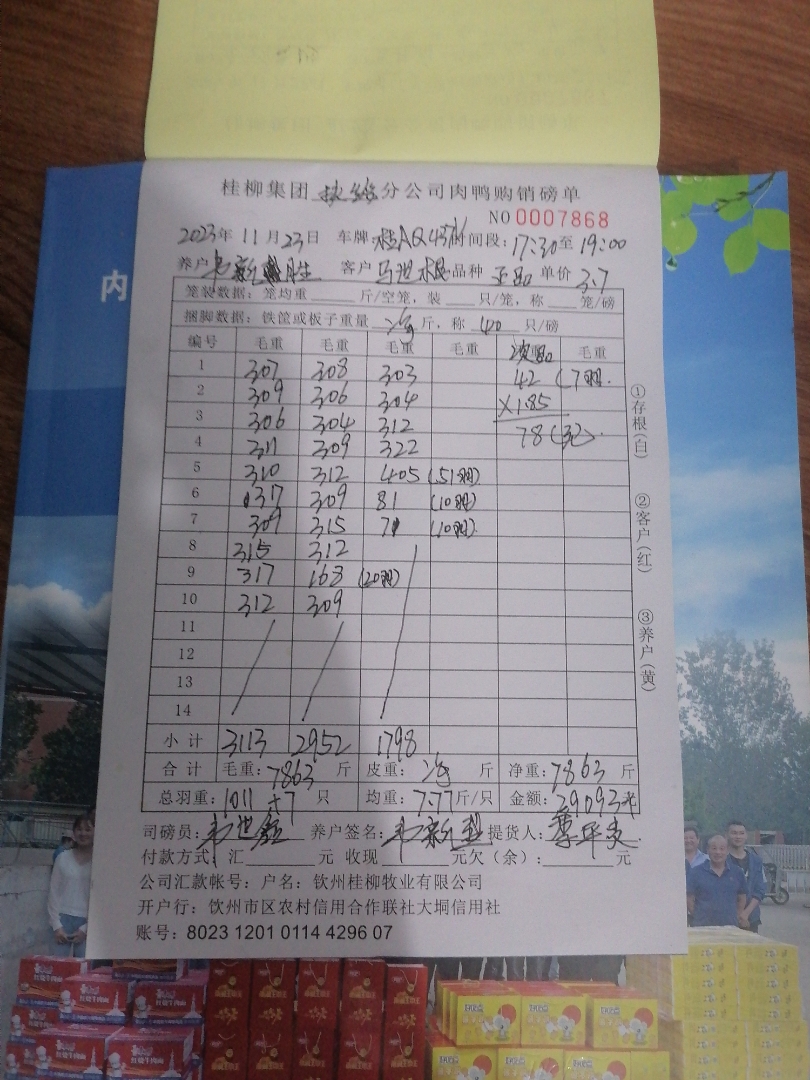 桂柳集团 分公司肉鸭购销磅单
NO 0007868
2023年 11月 23日 车牌 桂AQ 时间段：17:30至 19:00
养户 韦新 胜 客户 马进根 品种 单价 3.7
笼装数据：笼均重 斤/空笼，装 只/笼，称 笼/磅
捆脚数据：铁筐或板子重量 斤，称 40 只/磅
编号 毛重 毛重 毛重 毛重 毛重
1 307 308 303 42 (7羽)
2 309 306 304 ×1.85
3 306 304 312 78
4 311 309 322
5 310 312 405 (51羽)
6 317 309 81 (10羽)
7 309 315 71 (10羽)
8 315 312
9 317 168 (20羽)
10 312 309
11
12
13
14
小计 3113 2952 1798
合计 毛重：7863 斤 皮重： 斤 净重：7863 斤
总羽重：1011+7 只 均重：7.77斤/只 金额：29093元
司磅员：韦世鑫 养户签名：韦新 提货人：
付款方式：汇 元 收现 元欠（余）： 元
公司汇款帐号：户名：钦州桂柳牧业有限公司
开户行：钦州市区农村信用合作联社大垌信用社
账号：8023 1201 0114 4296 07
①存根（白）
②客户（红）
③养户（黄）
内